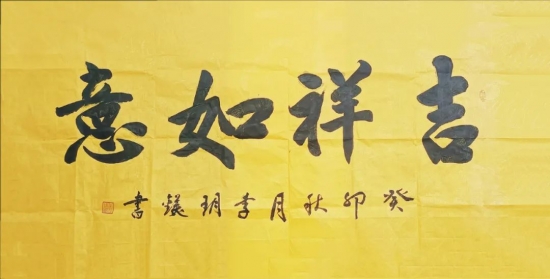 吉祥如意
癸卯秋月李玥鍈書